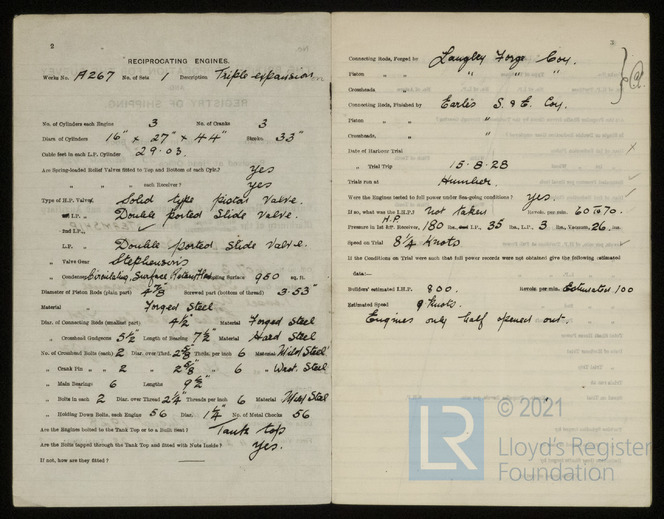 2
RECIPROCATING ENGINES.
Works No. A267 No. of Sets 1 Description Triple expansion
No. of Cylinders each Engine 3 No. of Cranks 3
Diars. of Cylinders 16" x 27" x 44" Stroke 33"
Cubic feet in each L.P. Cylinder 29.03
Are Spring-loaded Relief Valves fitted to Top and Bottom of each Cylr.? Yes
" " " each Receiver? Yes
Type of H.P. Valve, Solid type piston valve.
1st I.P. " Double ported Slide valve.
2nd I.P. "
L.P. " Double ported slide valve.
" Valve Gear Stephensons
" Condenser Circulating, Surface Cooling Surface 950 sq. ft.
Diameter of Piston Rods (plain part) 4 7/8 Screwed part (bottom of thread) 3.53"
Material Forged Steel
Diar. of Connecting Rods (smallest part) 4 1/2" Material Forged Steel
" Crosshead Gudgeons 5 1/2 Length of Bearing 7 1/2" Material Hard Steel
No. of Crosshead Bolts (each) 2 Diar. over Thrd. 2 5/8" Thrds. per inch 6 Material Mild Steel
" Crank Pin " " 2 " 2 5/8" " 6 " Wrot. Steel
" Main Bearings 6 Lengths 9 1/2"
" Bolts in each 2 Diar. over Thread 2 1/4" Threads per inch 6 Material Mild Steel
" Holding Down Bolts, each Engine 56 Diar. 1 1/4" No. of Metal Chocks 56
Are the Engines bolted to the Tank Top or to a Built Seat? Tank top
Are the Bolts tapped through the Tank Top and fitted with Nuts Inside? Yes.
If not, how are they fitted?
3
Connecting Rods, Forged by Langley Forge Coy.
Piston " " " " "
Crossheads, "
Connecting Rods, Finished by Earle's S. & E. Coy.
Piston " "
Crossheads, "
Date of Harbour Trial
" Trial Trip 15.8.28
Trials run at Humber.
Were the Engines tested to full power under Sea-going conditions? Yes.
If so, what was the I.H.P.? Not taken Revols. per min. 60 to 70.
Pressure in 1st R.P. Receiver, H.P. 180 lbs., 2nd I.P., 35 lbs., L.P. 3 lbs., Vacuum, 26 ins.
Speed on Trial 8 1/4 Knots
If the Conditions on Trial were such that full power records were not obtained give the following estimated
data:—
Builders' estimated I.H.P. 800. Revols. per min. Estimated 100
Estimated Speed 9 Knots.
Engines only half opened out.
© 2021
LR
Lloyd's Register
Foundation